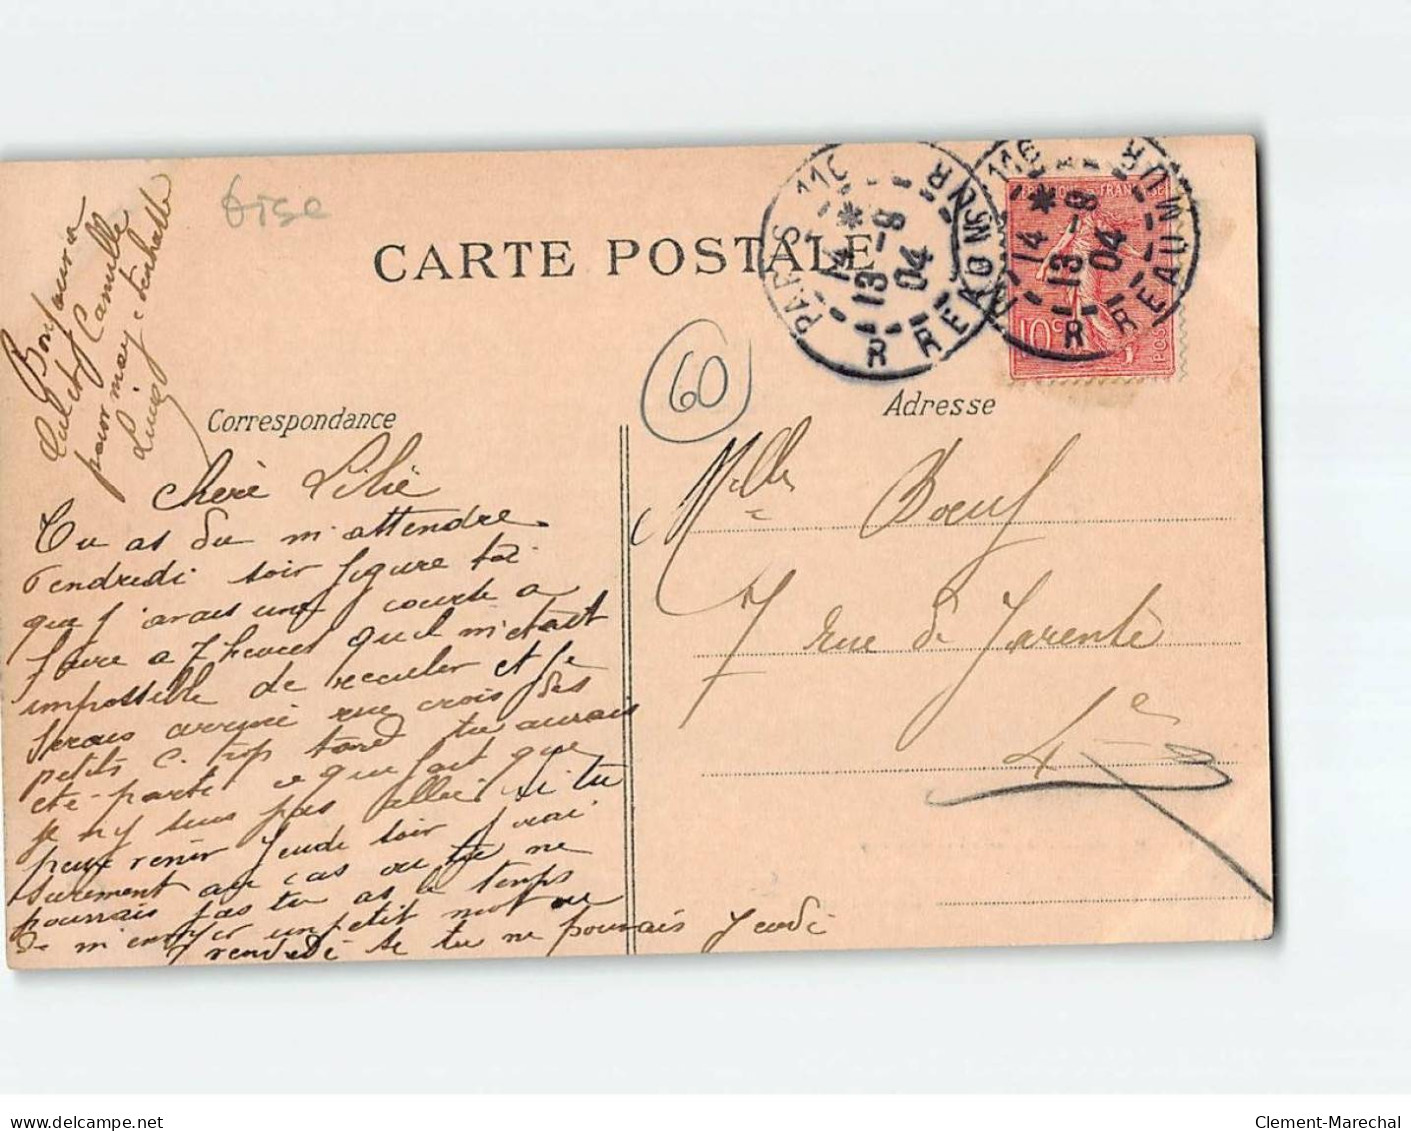 Oise
CARTE POSTALE
PARIS 110 R. REAUMUR
14 * 13 -8 04
REPUBLIQUE FRANÇAISE
10c
POS
60
Correspondance
Adresse
Bonjour à
Camille
pour moy
Louis
Chère Lilie
Tu as du m'attendre
Vendredi soir figure toi
que j'avais une course a
faire a 7 heures qu'il m'etait
impossible de reculer et je
serais arrivé rue crois des
petits C. trop tard tu aurais
été partie ce qui fait que
je n'y suis pas allé si tu
peux venir Jeudi soir j'irai
surement au cas ou tu ne
pourrais pas tu as le temps
de m'envoyer un petit mot ou
vendredi si tu ne pouvais Jeudi
Mlle Bœuf
7 rue de Jarente
4e
delcampe.net
Clement-Marechal